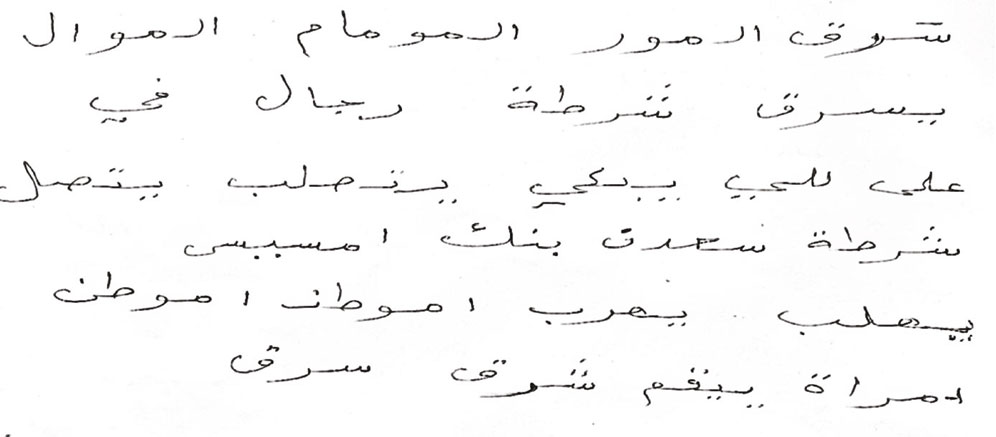 شرق المور المومام الموال
يسرق شرطة رجال في
على للحي يبكي يتصلب يتصل
شرطة سعدت بنك امسبس
يهلب يهرب اموطن اموطن
امراة ينقم شرق سرق